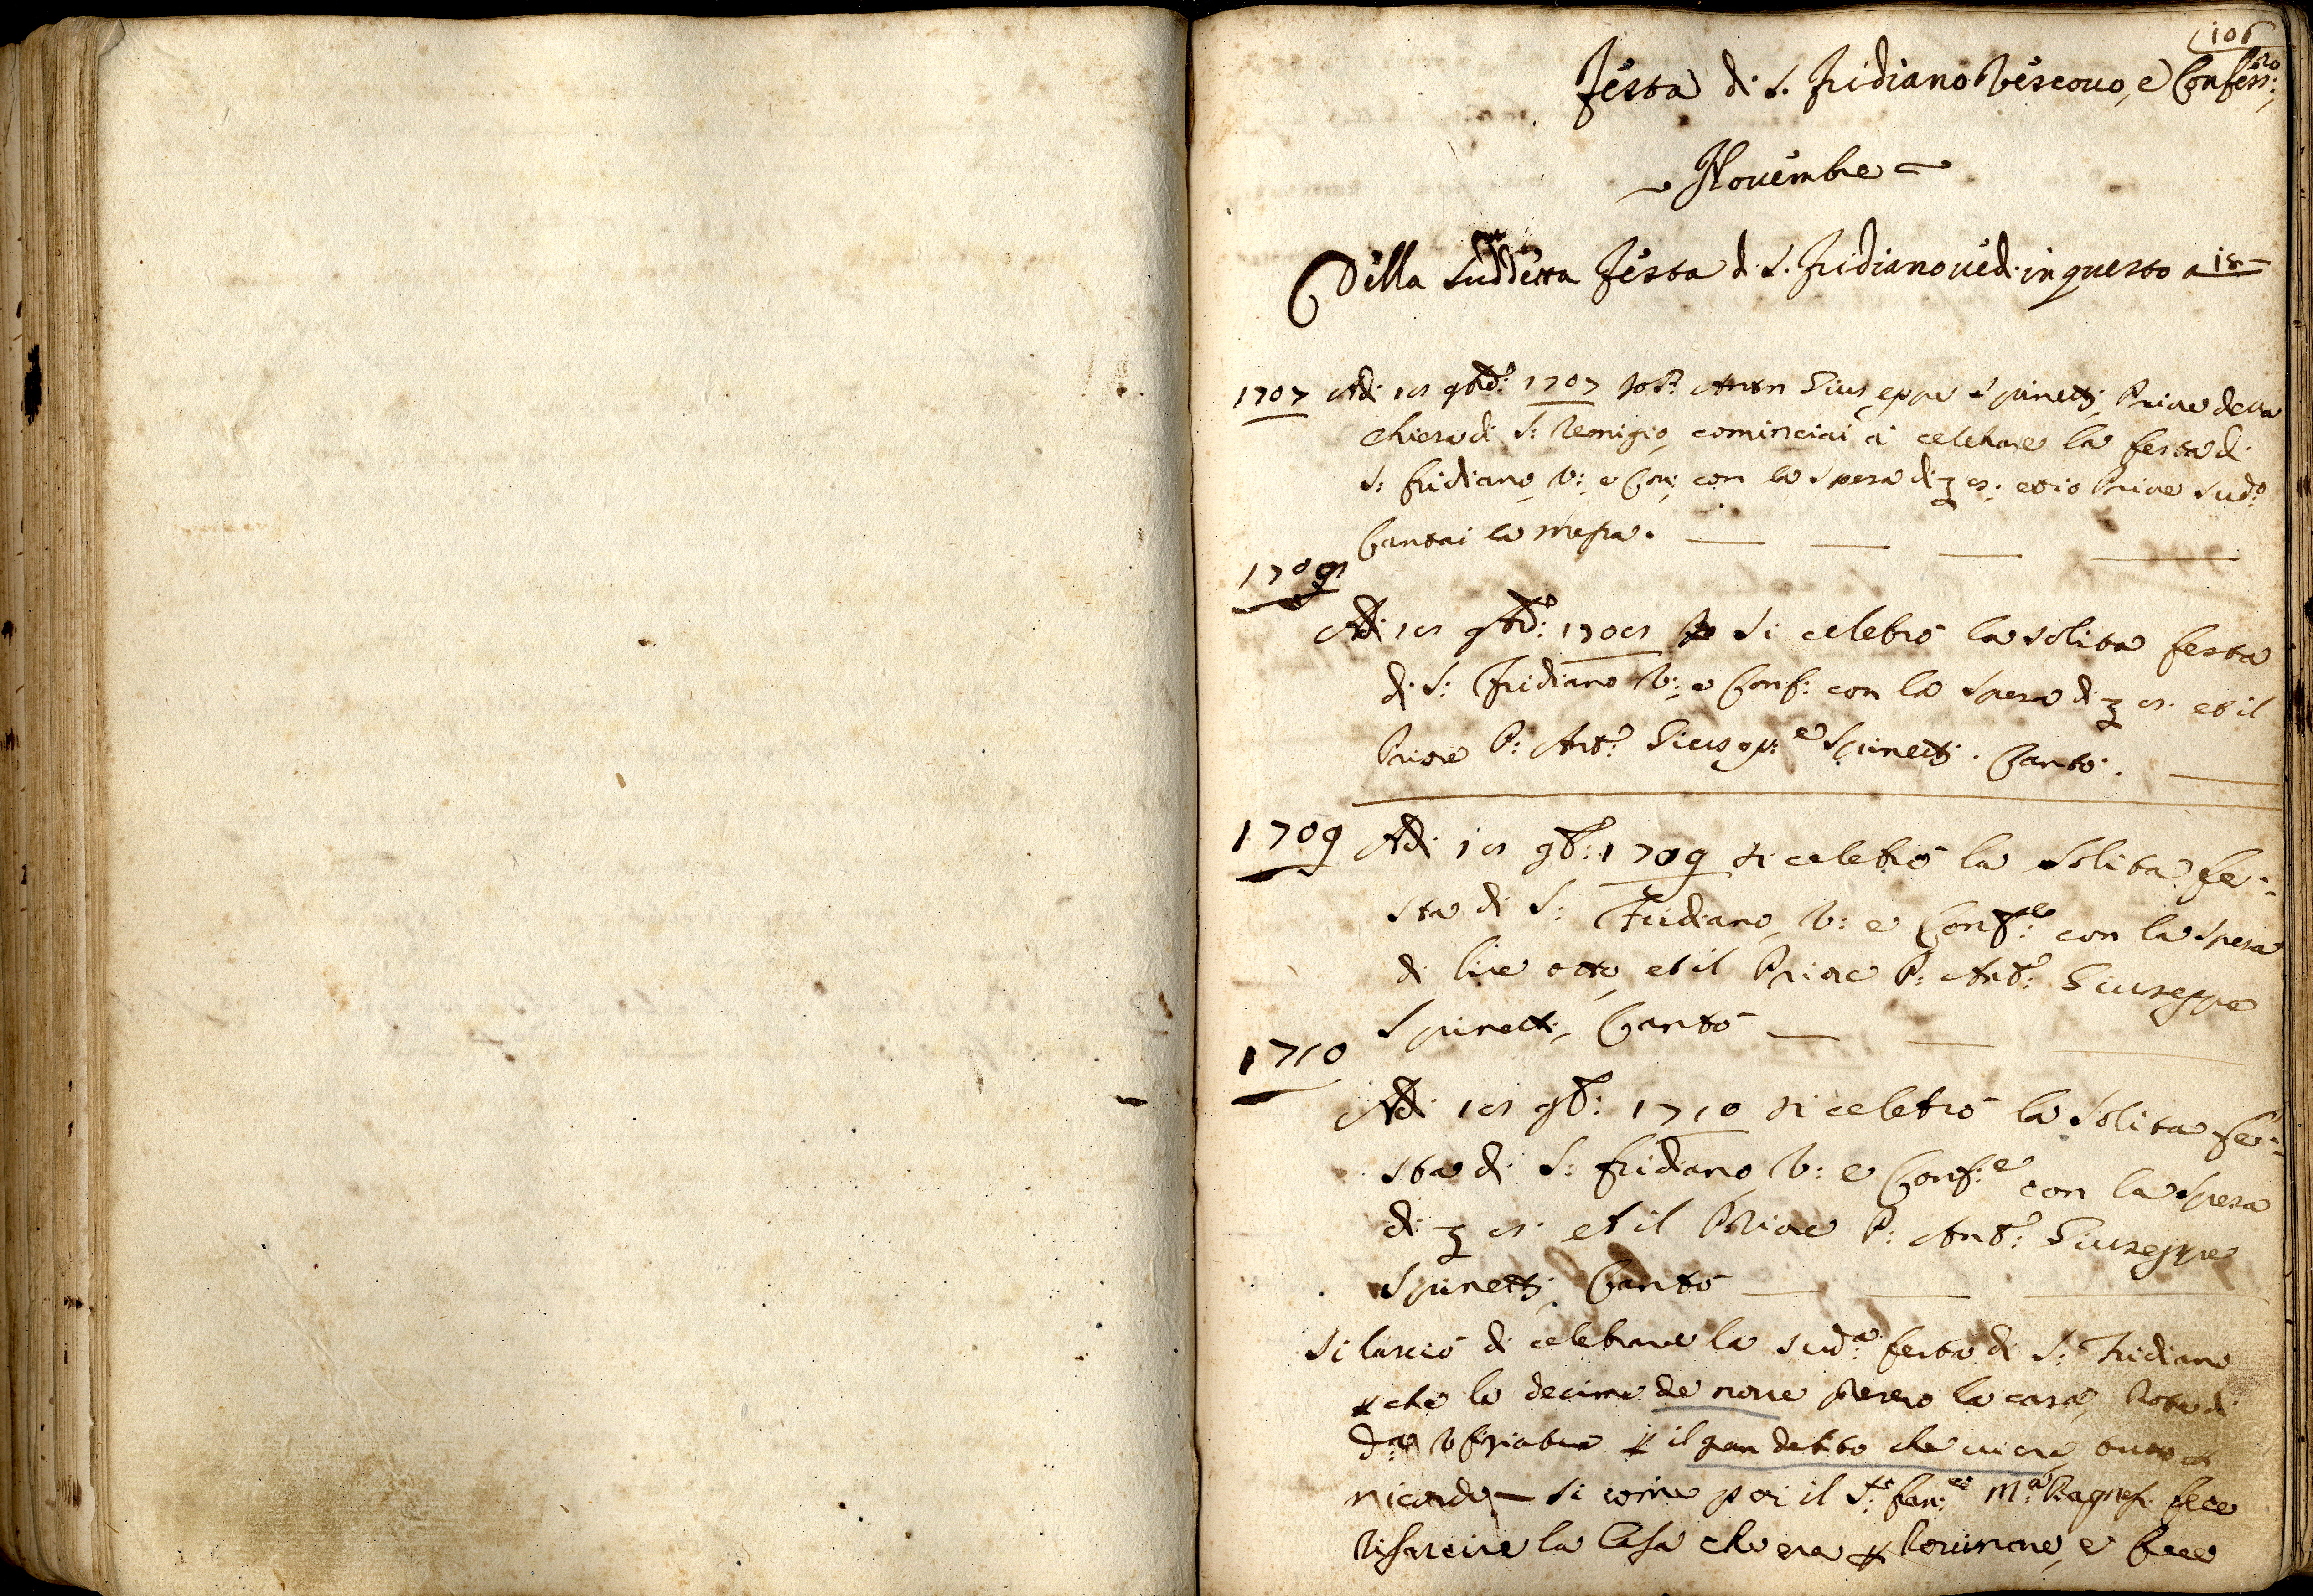 106
Festa di S. Fridiano Vescouo, e Confess:ro
Nouembre
Della Suddetta Festa di S. Fridiano ued. in questo a 18
1707 Adi 18 9bre: 1707 Io P: Anton Giuseppe Spinetti Priore della
chiesa di S: Remigio, cominciai a celebrare la festa di
S: fridiano, V: e Con: con la spesa di ʒ 8: et io Priore Sudo:
Cantai la messa.
1708
Adi 18 9bre: 1708 si celebrò la solita festa
di S: Fridiano V: e Conf: con la spesa di ʒ 8. et il
Priore P: Anto: Giusepp:e Spinetti. Cantò.
1709 Adi 18 9b: 1709 si celebrò la Solita fe:
sta di S: Fridiano, V: e Conf:re con la spesa
di lire otto, et il Priore P: Anto: Giuseppe
Spinetti, Cantò
1710
Adi 18 9b: 1710 si celebrò la Solita fe:
sta di S: fridiano, V: e Conf:e con la spesa
di ʒ 8. et il Priore P: Anto: Giuseppe
Spinetti, Cantò
Si lasciò di celebrare la sud:a festa di S: Fridiano
che le decime de noue la casa,
il gran debito che
ricordo si come poi il S:re Fran:co M:a fece
risarcire la Casa che era rouinare, e fece